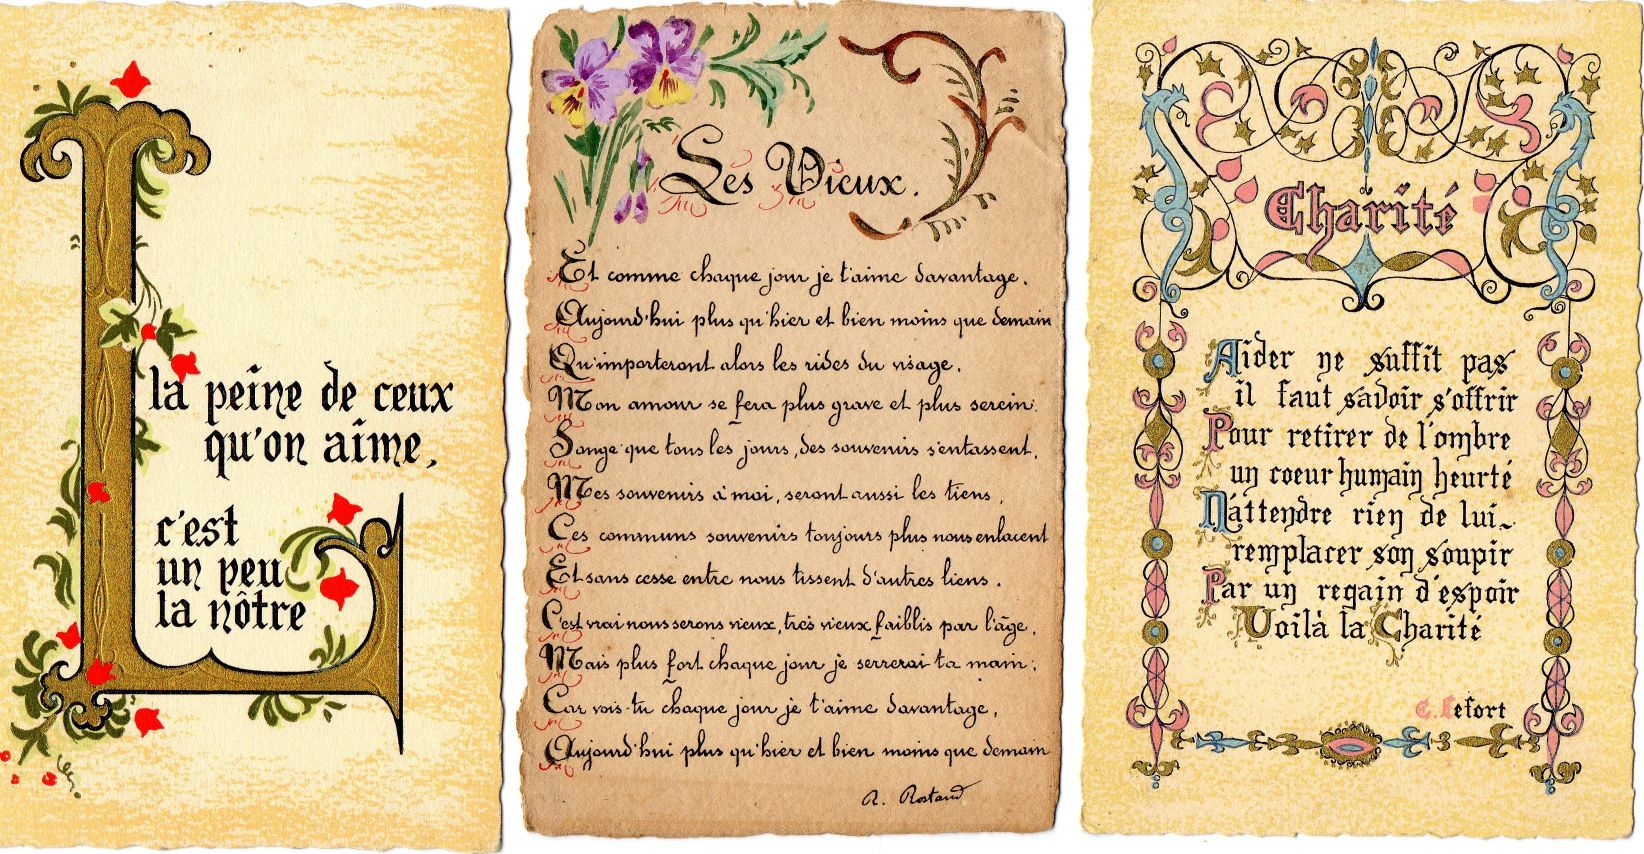 L
la peine de ceux
qu'on aime,
c'est
un peu
la nôtre
Les Vieux.
Et comme chaque jour je t'aime davantage.
Aujourd'hui plus qu'hier et bien moins que demain
Qu'importeront alors les rides du visage.
Mon amour se fera plus grave et plus serein.
Songe que tous les jours, des souvenirs s'entassent,
Mes souvenirs à moi, seront aussi les tiens,
Ces communs souvenirs toujours plus nous enlacent
Et sans cesse entre nous tissent d'autres liens.
C'est vrai nous serons vieux, très vieux faiblis par l'âge,
Mais plus fort chaque jour je serrerai ta main;
Car vois-tu chaque jour je t'aime davantage,
Aujourd'hui plus qu'hier et bien moins que demain
R. Rostand
Charité
Aider ne suffit pas
il faut savoir s'offrir
Pour retirer de l'ombre
un coeur humain heurté
N'attendre rien de lui~
remplacer son soupir
Par un regain d'espoir
Voilà la Charité
C. Lefort